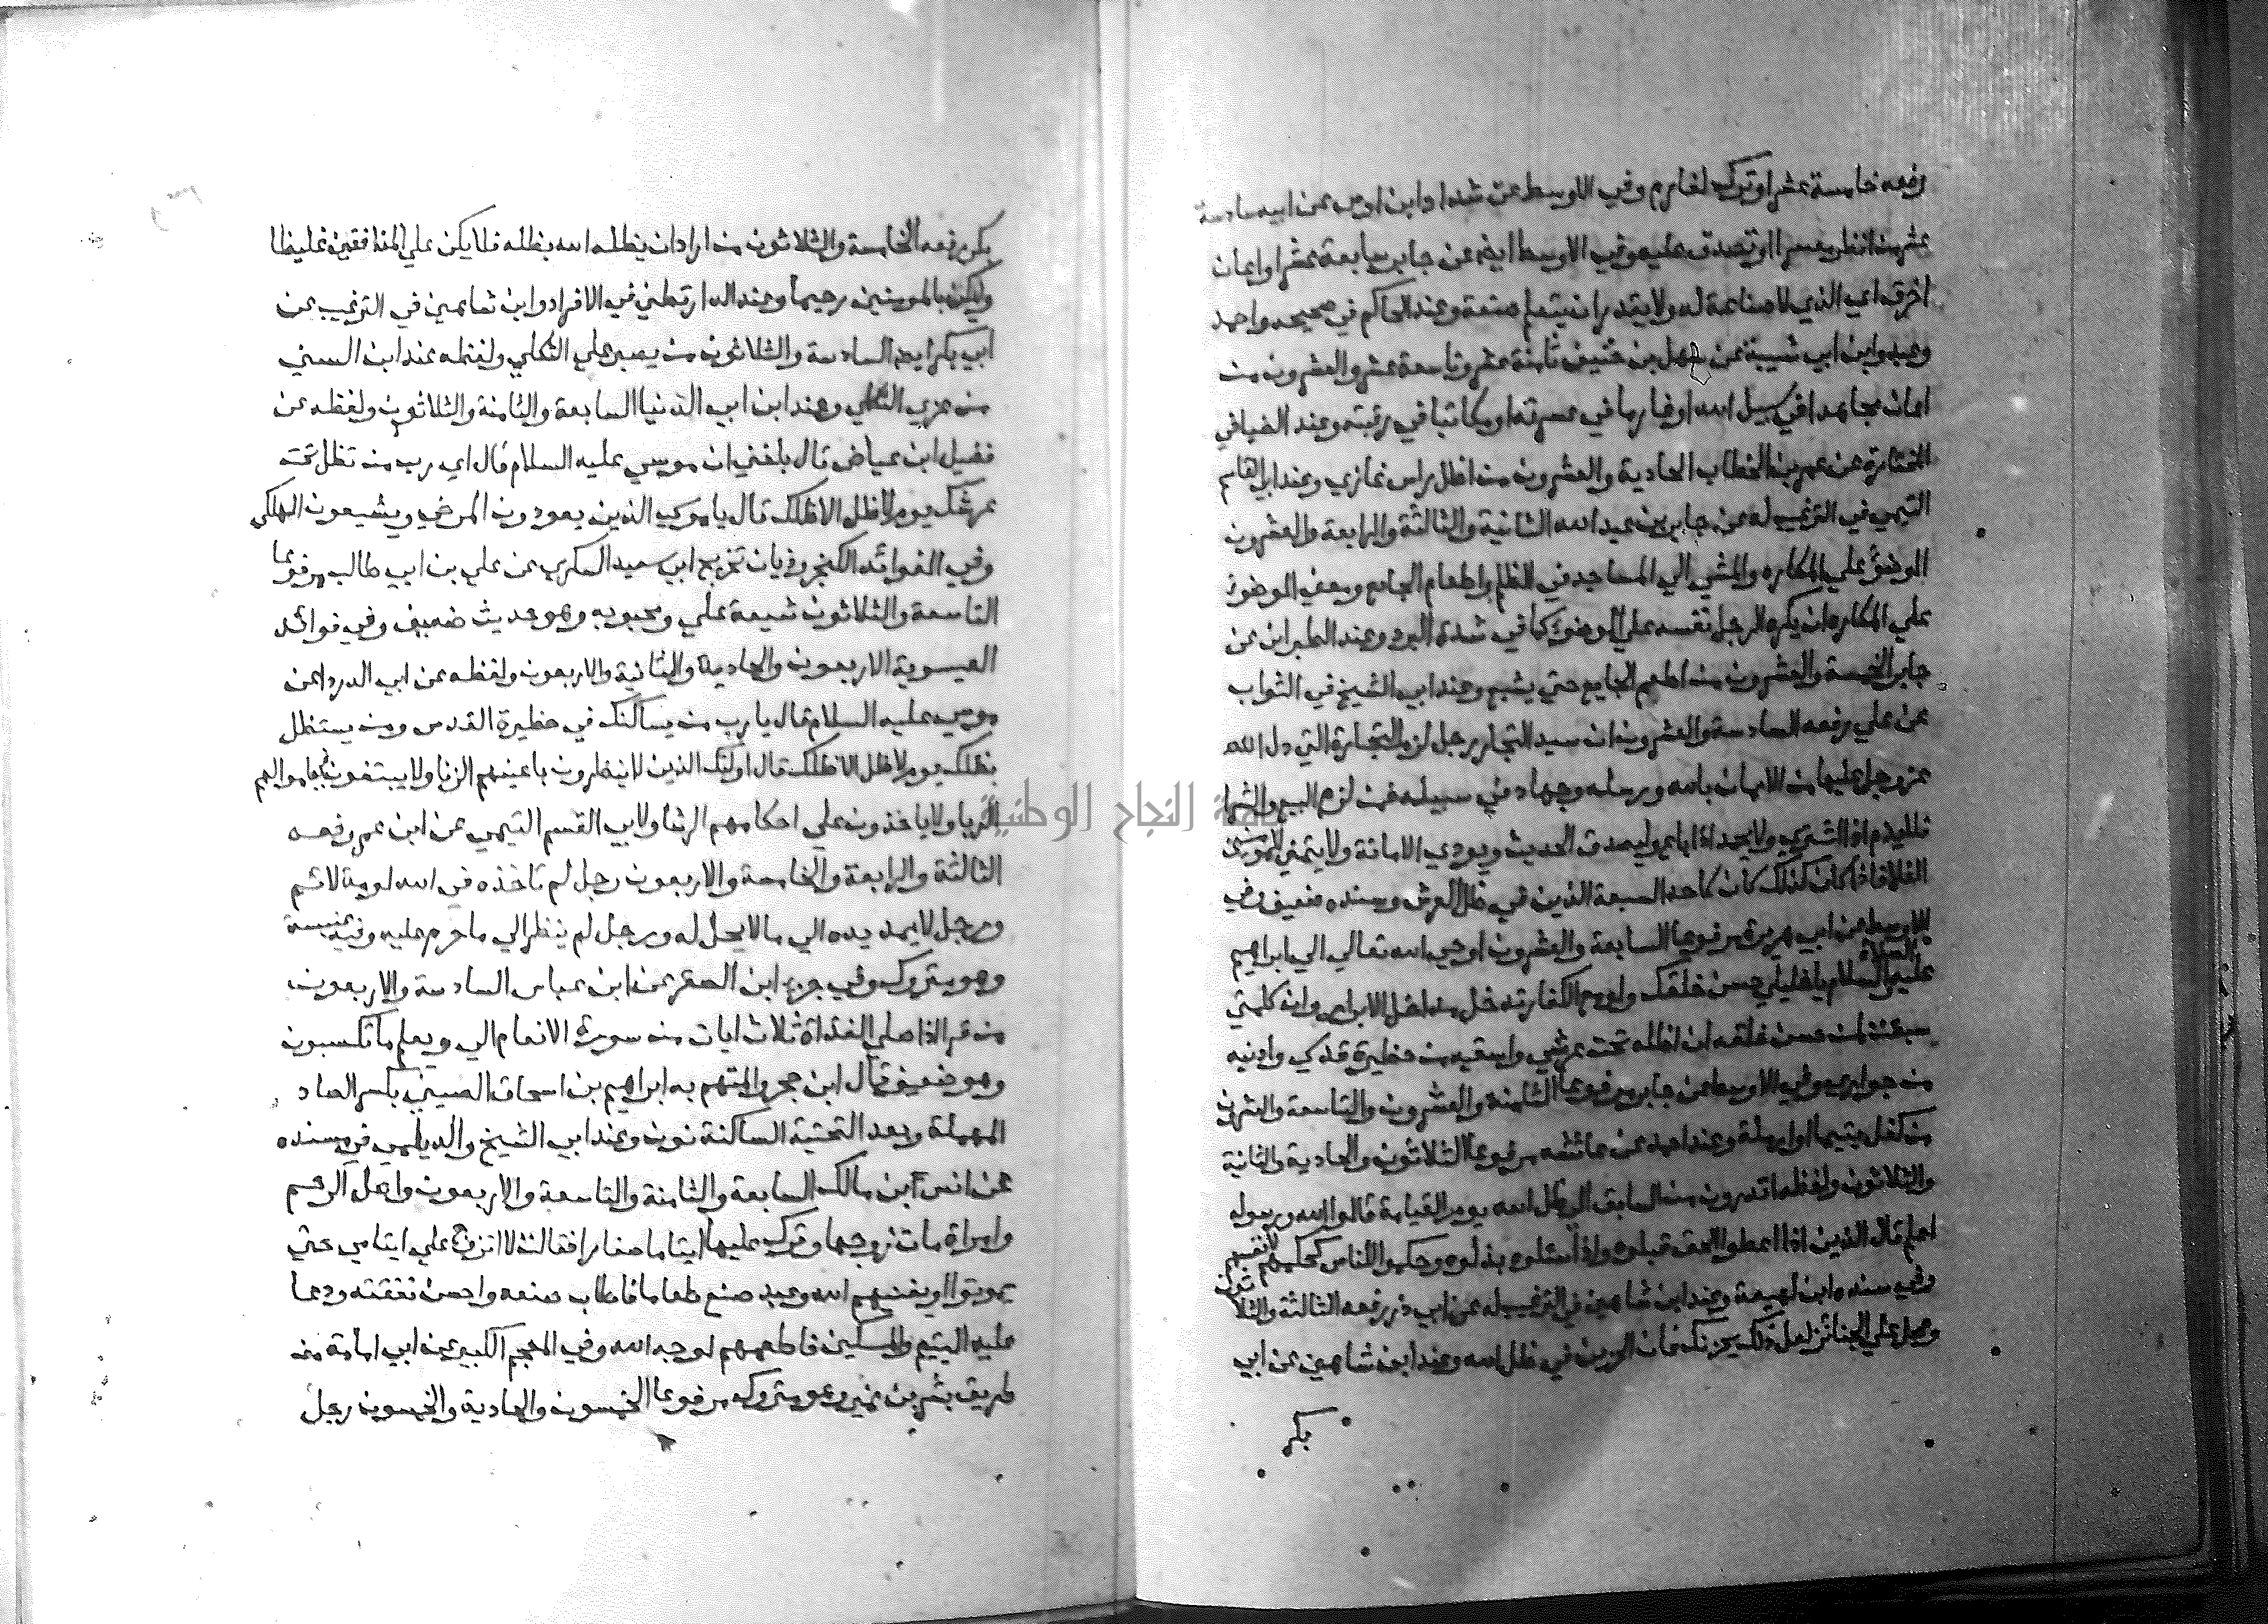 رفعه خامسة عشر او ترك لغارم وفي الاوسط عن شداد ابن اوس عن ابيه سادسة
عشر من انظر معسرا او تصدق عليه وفي الاوسط ايضا عن جابر سابعة عشر او اعان
اخرق اي الذي لا صناعة له ولا يقدر ان يتعلم صنعة وعند الحاكم في صحيحه واحمد
وعبد وابن ابي شيبة عن سهل بن حنيف ثامنة عشر وتاسعة عشر والعشرون من
اعان مجاهدا في سبيل الله او غارما في عسرته او مكاتبا في رقبته وعند الضيا في
المختارة عن عمر بن الخطاب الحادية والعشرون من اظل راس غازي وعند ابي القاسم
التيمي في الترغيب له عن جابر بن عبد الله الثانية والثالثة والرابعة والعشرون
الوضؤ علي المكاره والمشي الي المساجد في الظلم واطعام الجايع ومعني الوضوء
علي المكاره ان يكره الرجل نفسه علي الوضوء كما في شدة البرد وعند الطبراني عن
جابر الخمسة والعشرون من اطعم الجايع حتي يشبع وعند ابي الشيخ في الثواب
عن علي رفعه السادسة والعشرون ان سيد التجار رجل لزم التجارة التي دل الله
عز وجل عليها من الايمان بالله ورسله وجهاد في سبيله فمن لزم البيع والشرا
فلا يذم اذا اشتري ولا يحمد اذا باع وليصدق الحديث ويودي الامانة ولا يتمني للمومنين
الغلا فاذا كان كذلك كان كاحد السبعة الذين في ظل العرش وسنده ضعيف وفي
الاوسط عن ابي هريرة مرفوعا السابعة والعشرون اوحي الله تعالي الي ابراهيم
عليه الصلاة والسلام يا خليلي حسن خلقك ولو مع الكفار تدخل مداخل الابرار وان كلمتي
سبقت لمن حسن خلقه ان اظله تحت عرشي واسقيه من حظيرة قدسي وادنيه
من جواري وفي الاوسط عن جابر مرفوعا الثامنة والعشرون والتاسعة والعشرون
من كفل يتيما او ارملة وعند احمد عن عائشه مرفوعا الثلاثون والحادية والثانية
والثلاثون ولفظه اتدرون من السابق الي ظل الله يوم القيامة قالوا الله ورسوله
اعلم قال الذين اذا اعطوا الحق قبلوه واذا سئلوه بذلوه وحكموا للناس كحكمهم لانفسهم
وفي سنده ابن لهيعة وعند ابن شاهين في الترغيب له عن ابي ذر رفعه الثالثة والثلاثون
وصل علي الجنائز لعل ذلك يحزنك فان الحزين في ظل الله وعند ابن شاهين عن ابي
بكر
بكر رفعه الخامسة والثلاثون من اراد ان يظله الله بظله فلا يكن علي المنافقين غليظا
وليكن بالمومنين رحيما وعند الدارقطني في الافراد وابن شاهين في الترغيب عن
ابي بكر ايضا السادسة والثلاثون من يصبر علي الثكلي ولفظه عند ابن السني
من عزي الثكلي وعند ابن ابي الدنيا السابعة والثامنة والثلاثون ولفظه عن
فضيل ابن عياض قال بلغني ان موسي عليه السلام قال اي رب من تظل تحت
عرشك يوم لا ظل الا ظلك قال يا موسي الذين يعودون المرضي ويشيعون الهلكي
وفي الفوائد الكنجروذيات تخريج ابي سعيد السكري عن علي بن ابي طالب مرفوعا
التاسعة والثلاثون شيعة علي ومحبوبه وهو حديث ضعيف وفي فوائد
العيسوية الاربعون والحادية والثانية والاربعون ولفظه عن ابي الدردا عن
موسي عليه السلام قال يا رب من يساكنك في حظيرة القدس ومن يستظل
بظلك يوم لا ظل الا ظلك قال اولئك الذين لا ينظرون باعينهم الزنا ولا يبتغون في اموالهم
الربا ولا ياخذون علي احكامهم الرشا ولابي القسم التيمي عن ابن عمر رفعه
الثالثة والرابعة والخامسة والاربعون رجل لم تاخذه في الله لومة لائم
ورجل لا يمد يده الي ما لا يحل له ورجل لم ينظر الي ما حرم عليه وفيه عنبسة
وهو متروك وفي جزء ابن الصقر عن ابن عباس السادسة والاربعون
من قرا اذا صلي الغداة ثلاث ايات من سورة الانعام الي ويعلم ما تكسبون
وهو ضعيف قال ابن حجر والمتهم به ابراهيم بن اسحاق الصيني بكسر الصاد
المهملة وبعد التحتية الساكنة نون وعند ابي الشيخ والديلمي في مسنده
عن انس ابن مالك السابعة والثامنة والتاسعة والاربعون واصل الرحم
وامراة مات زوجها وترك عليها ايتاما صغارا فقالت لا اتزوج علي ايتامي حتي
يموتوا او يغنيهم الله وعبد صنع طعاما فاطاب صنعه واحسن نفقته ودعا
عليه اليتيم والمسكين فاطعمهم لوجه الله وفي المعجم الكبير عن ابي امامة من
طريق بشر بن نمير وهو متروك مرفوعا الخمسون والحادية والخمسون رجل
جامعة النجاح الوطنية